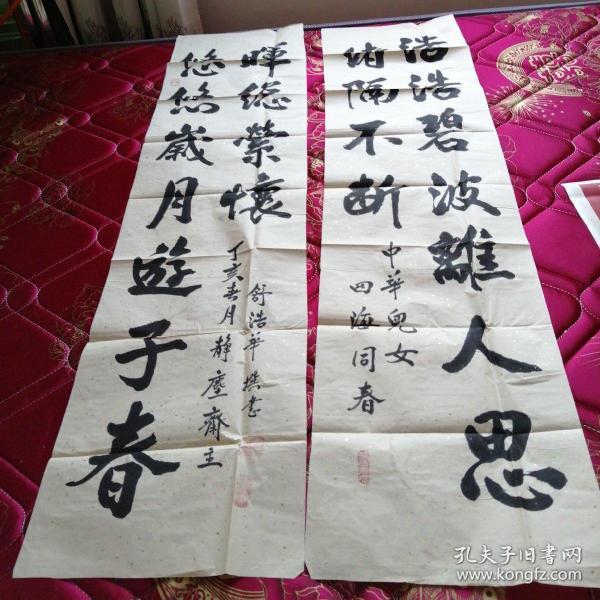 浩浩碧波離人思
緒隔不断
中華兒女
四海同春
悠悠歲月遊子春
暉総縈懷
丁亥春月
静塵齋主
舒浩華撰書
孔夫子旧书网
www.kongfz.com